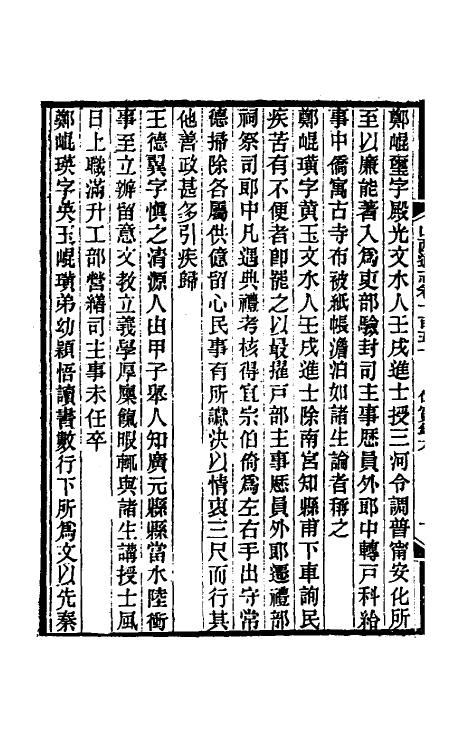 鄭崐璽字殿光文水人壬戌進士授三河令調普甯安化所
至以廉能著入爲吏部驗封司主事歷員外郎中轉戸科給
事中僑寓古寺布被紙帳澹泊如諸生論者稱之
鄭崐璜字黃玉文水人壬戌進士除南宮知縣甫下車詢民
疾苦有不便者卽罷之以最擢戸部主事歷員外郎遷禮部
祠祭司郎中凡遇典禮考核得宜宗伯倚爲左右手出守常
德掃除各屬供億留心民事有所讞決以情衷三尺而行其
他善政甚多引疾歸
王德翼字愼之清源人由甲子舉人知廣元縣縣當水陸衝
事至立辦留意文教立義學厚廩餼暇輒與諸生講授士風
日上職滿升工部營繕司主事未任卒
鄭崐瑛字英玉崐璜弟幼穎悟讀書數行下所爲文以先秦